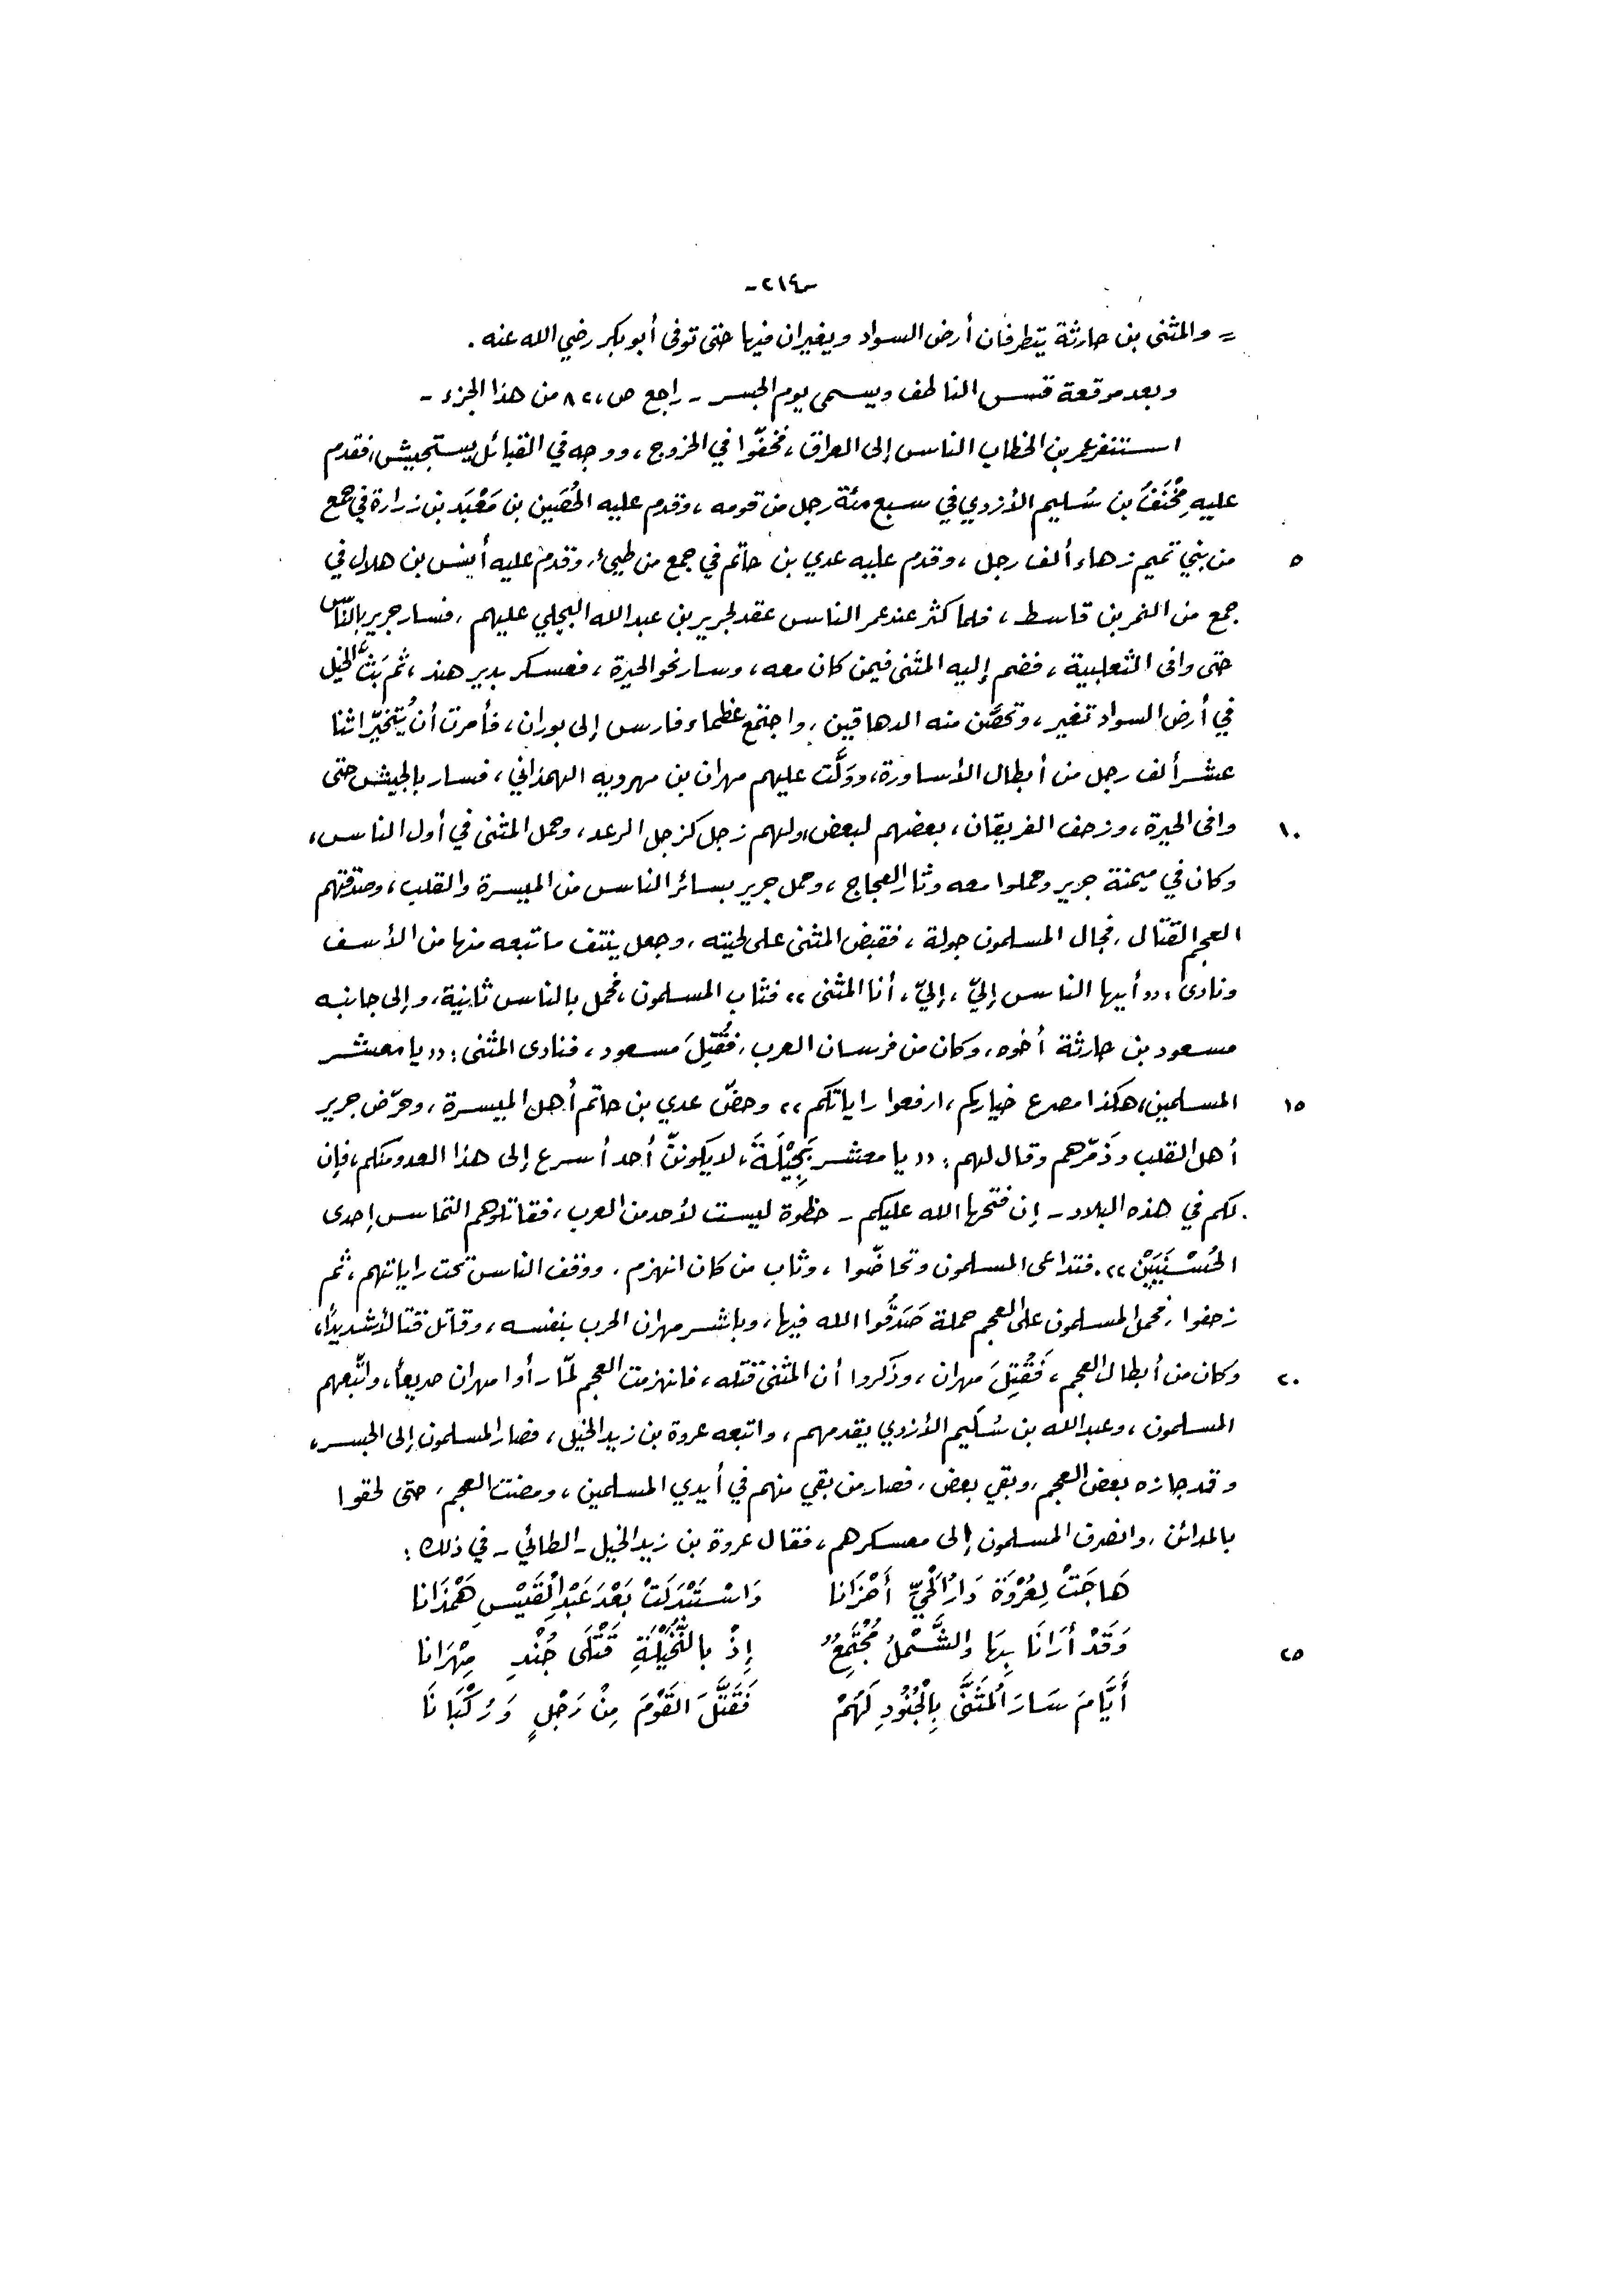 -٢١٤-
= والمثنى بن حارثة يتطرفان أرض السواد ويغيران فيها حتى توفى أبو بكر رضي الله عنه .
وبعد موقعة قسس الناطف ويسمى يوم الجسر - راجع ص، ٨٢ من هذا الجزء -
استنفر عمر بن الخطاب الناس إلى العراق ، فخفّوا في الخروج ، ووجه في القبائل يستجيش ، فقدم
عليه مِخْنَفُ بن سُليم الأزدي في سبع مئة رجل من قومه ، وقدم عليه الحُصَين بن مَعْبَد بن زرارة في جمع
٥ من بني تميم زهاء ألف رجل ، وقدم عليه عدي بن حاتم في جمع من طيئ ، وقدم عليه أنس بن هلال في
جمع من النمر بن قاسط ، فلما كثر عند عمر الناس عقد لجرير بن عبد الله البجلي عليهم ، فسار جرير بالناس
حتى وافى الثعلبية ، فضم إليه المثنى فيمن كان معه ، وسار نحو الحيرة ، فعسكر بدير هند ، ثم بَثَّ الخيل
في أرض السواد تغير ، وتحصَّن منه الدهاقين ، واجتمع عظماء فارس إلى بوران ، فأمرت أن يُتخيّر اثنا
عشر ألف رجل من أبطال الأساورة ، وولَّت عليهم مهران بن مهرويه الهمذاني ، فسار بالجيش حتى
١٠ وافى الحيرة ، وزحف الفريقان ، بعضهم لبعض ، ولهم زجل كزجل الرعد ، وحمل المثنى في أول الناس ،
وكان في ميمنة جرير وحملوا معه وثار العجاج ، وحمل جرير بسائر الناس من الميسرة والقلب ، وصدقتهم
العجم القتال ، فجال المسلمون جولة ، فقبض المثنى على لحيته ، وجعل ينتف ما تبعه منها من الأسف
ونادى : (( أيها الناس إليّ ، إليّ ، أنا المثنى )) فثاب المسلمون ، فحمل بالناس ثانية ، وإلى جانبه
مسعود بن حارثة أخوه ، وكان من فرسان العرب ، فقُتِلَ مسعود ، فنادى المثنى : (( يا معشر
١٥ المسلمين ، هكذا مصرع خياركم ، ارفعوا راياتكم )) وحضّ عدي بن حاتم أهل الميسرة ، وحرّض جرير
أهل القلب وذَمّرهم وقال لهم : (( يا معشر بَجِيْلَةَ ، لا يكوننّ أحد أسرع إلى هذا العدو منكم ، فإن
لكم في هذه البلاد - إن فتحها الله عليكم - حظوة ليست لأحد من العرب ، فقاتلوهم التماس إحدى
الحُسْنَيَيْن )) . فتداعى المسلمون وتحاضّوا ، وثاب من كان انهزم ، ووقف الناس تحت راياتهم ، ثم
زحفوا ، فحمل المسلمون على العجم حملة صَدَقُوا الله فيها ، وباشر مهران الحرب بنفسه ، وقاتل قتالاً شديداً ،
٢٠ وكان من أبطال العجم ، فَقُتِلَ مهران ، وذَكروا أن المثنى قتله ، فانهزمت العجم لمّا رأوا مهران صريعاً ، واتّبعهم
المسلمون ، وعبد الله بن سُلَيم الأزدي يقدمهم ، واتبعه عروة بن زيد الخيل ، فصار المسلمون إلى الجسر ،
وقد جازه بعض العجم ، وبقي بعض ، فصار من بقي منهم في أيدي المسلمين ، ومضت العجم ، حتى لحقوا
بالمدائن ، وانصرف المسلمون إلى معسكرهم ، فقال عروة بن زيد الخيل - الطائي - في ذلك :
هَاجَتْ لِعُرْوَةَ دَارُ الْحَيِّ أَحْزَانَا وَاسْتَبْدَلَتْ بَعْدَ عَبْدِ الْقَيْسِ هَمْذَانَا
٢٥ وَقَدْ أَرَانَا بِهَا وَالشَّمْلُ مُجْتَمِعٌ إِذْ بِالنُّخَيْلَةِ قَتْلَى جُنْدِ مِهْرَانَا
أَيَّامَ سَارَ الْمُثَنَّى بِالْجُنُودِ لَهُمْ فَقَتَّلَ القَوْمَ مِنْ رَجْلٍ وَرُكْبَانَا